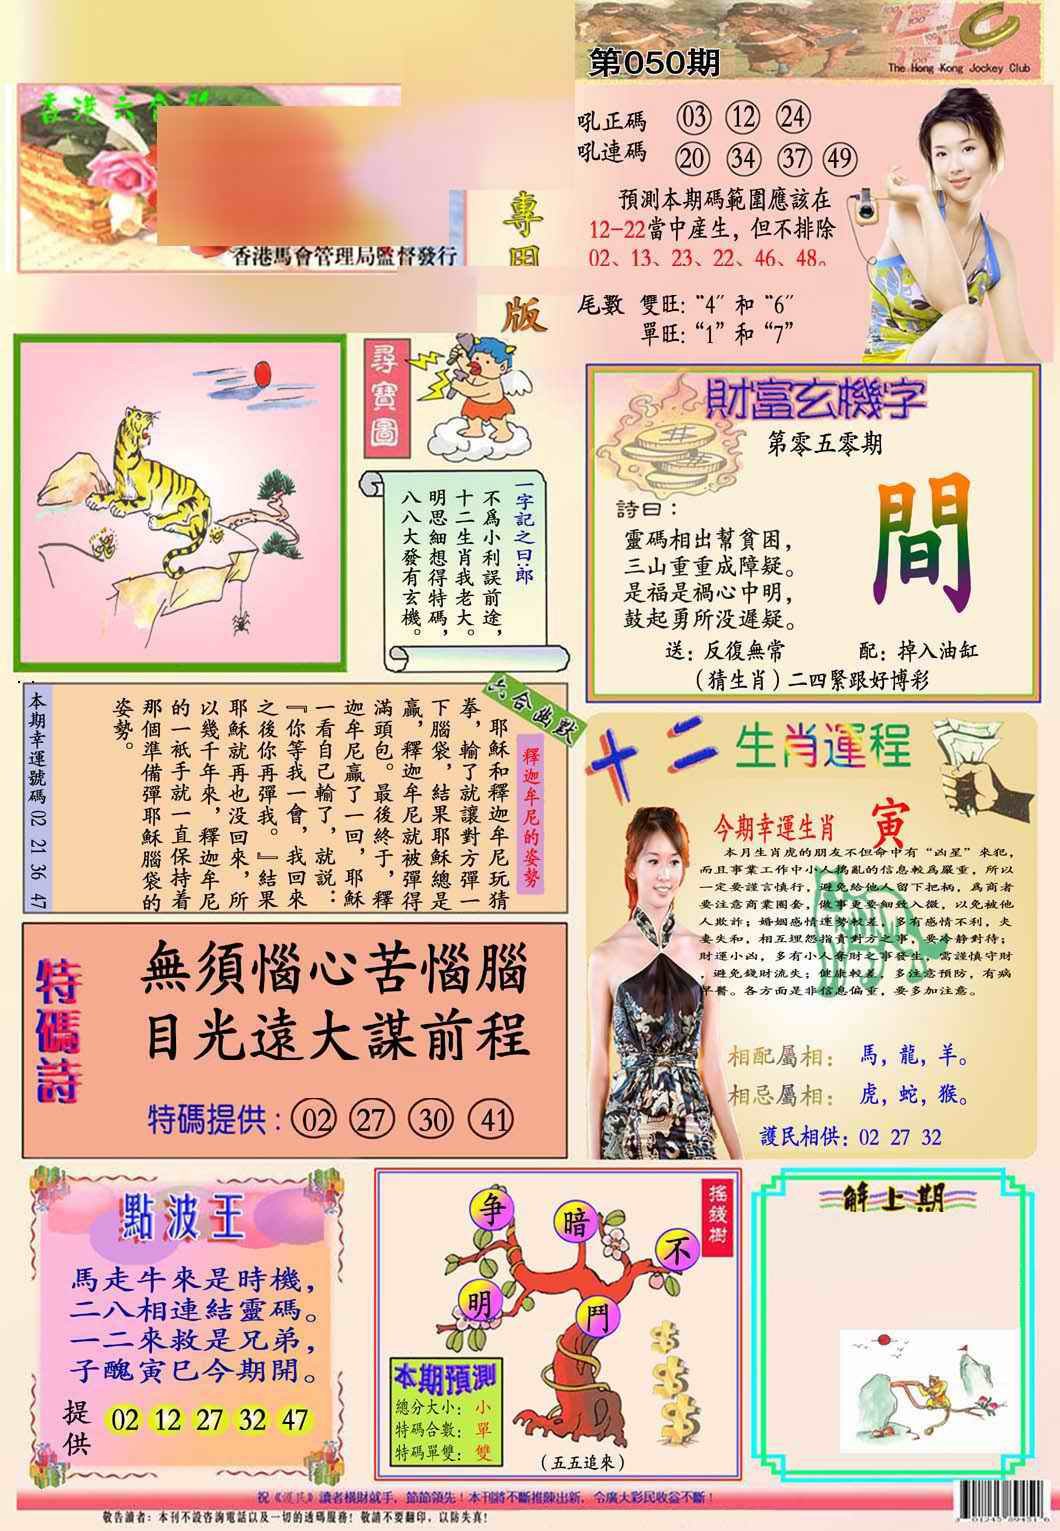 第050期
The Hong Kong Jockey Club
香港六合
香港馬會管理局監督發行
專門版
吼正碼 03 12 24
吼連碼 20 34 37 49
預測本期碼範圍應該在
12-22當中産生，但不排除
02、13、23、22、46、48。
尾數 雙旺：“4”和“6”
單旺：“1”和“7”
尋寶圖
一字記之曰：郎
不爲小利誤前途，
十二生肖我老大。
明思細想得特碼，
八八大發有玄機。
財富玄機字
第零五零期
詩曰：
靈碼相出幫貧困，
三山重重成障疑。
是福是禍心中明，
鼓起勇所没遲疑。
間
送：反復無常 配：掉入油缸
（猜生肖）二四緊跟好博彩
六合幽默
釋迦牟尼的姿勢
耶穌和釋迦牟尼玩猜
拳，輸了就讓對方彈一
下腦袋，結果耶穌總是
贏，釋迦牟尼就被彈得
滿頭包。最後終于，釋
迦牟尼贏了一回，耶穌
一看自己輸了，就説：
『你等我一會，我回來
之後你再彈我。』結果
耶穌就再也没回來，所
以幾千年來，釋迦牟尼
的一衹手就一直保持着
那個準備彈耶穌腦袋的
姿勢。
本期幸運號碼 02 21 36 47
十二生肖運程
今期幸運生肖 寅
本月生肖虎的朋友不但命中有“凶星”來犯，
而且事業工作中小人搗亂的信息較爲嚴重，所以
一定要謹言慎行，避免給他人留下把柄，爲商者
要注意商業圈套，做事更要細致入微，以免被他
人欺詐；婚姻感情運勢較差，多有感情不利，夫
妻失和，相互埋怨指責對方之事，要冷静對待；
財運小凶，多有小人奪財之事發生，需謹慎守財
，避免錢財流失；健康較差，多注意預防，有病
早醫。各方面是非信息偏重，要多加注意。
相配屬相：馬，龍，羊。
相忌屬相：虎，蛇，猴。
護民相供：02 27 32
特碼詩
無須惱心苦惱腦
目光遠大謀前程
特碼提供：02 27 30 41
點波王
馬走牛來是時機，
二八相連結靈碼。
一二來救是兄弟，
子醜寅巳今期開。
提供 02 12 27 32 47
摇錢樹
争
暗
不
明
鬥
本期預測
總分大小：小
特碼合數：單
特碼單雙：雙
（五五追來）
解上期
祝《護民》讀者橫財就手，節節領先！本刊將不斷推陳出新，令廣大彩民收益不斷！
敬告讀者：本刊不設咨詢電話以及一切的透碼服務！敬請不要翻印，以防失真！